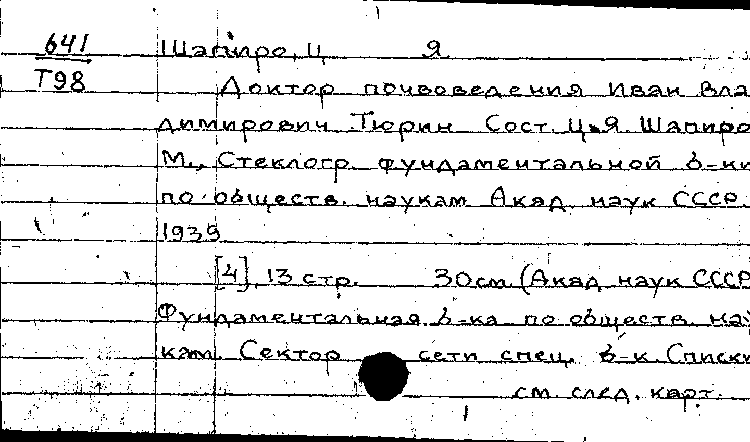 641 Шапиро, Ц Я.
Т98 Доктор почвоведения Иван Вла
димирович Тюрин Сост. Ц.Я. Шапиро
М., Стеклогр. фундаментальной б-ки
по обществ. наукам Акад. наук СССР
1939
[4], 13 стр. 30 см. (Акад. наук СССР
Фундаментальная б-ка по обществ. нау
кам. Сектор сети спец. б-к. Списки
см. след. карт.